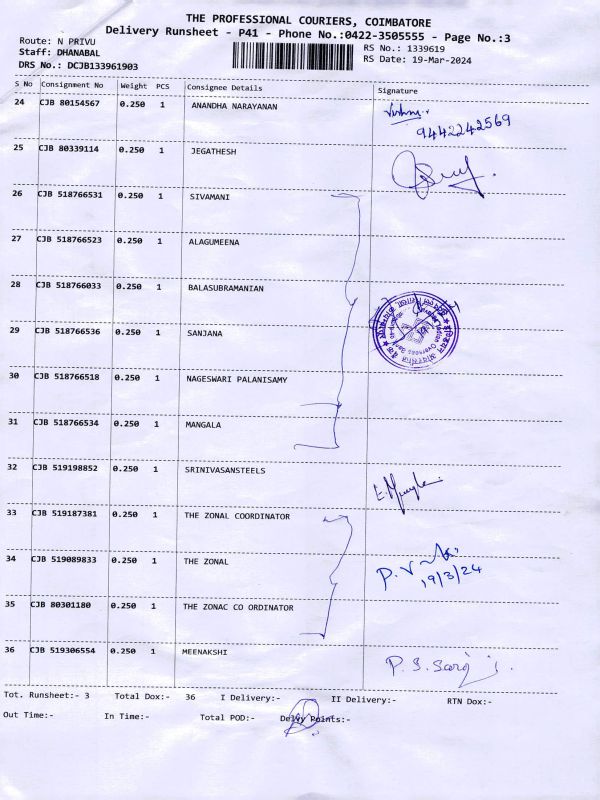 THE PROFESSIONAL COURIERS, COIMBATORE
Delivery Runsheet - P41 - Phone No.:0422-3505555 - Page No.:3
Route: N PRIVU
Staff: DHANABAL
DRS No.: DCJB133961903
RS No.: 1339619
RS Date: 19-Mar-2024
S No Consignment No Weight PCS Consignee Details Signature
24 CJB 80154567 0.250 1 ANANDHA NARAYANAN
9442242569
25 CJB 80339114 0.250 1 JEGATHESH
26 CJB 518766531 0.250 1 SIVAMANI
27 CJB 518766523 0.250 1 ALAGUMEENA
28 CJB 518766033 0.250 1 BALASUBRAMANIAN
29 CJB 518766536 0.250 1 SANJANA
30 CJB 518766518 0.250 1 NAGESWARI PALANISAMY
31 CJB 518766534 0.250 1 MANGALA
32 CJB 519198852 0.250 1 SRINIVASANSTEELS
33 CJB 519187381 0.250 1 THE ZONAL COORDINATOR
34 CJB 519089833 0.250 1 THE ZONAL
19/3/24
35 CJB 80301180 0.250 1 THE ZONAC CO ORDINATOR
36 CJB 519306554 0.250 1 MEENAKSHI
Tot. Runsheet:- 3 Total Dox:- 36 I Delivery:- II Delivery:- RTN Dox:-
Out Time:- In Time:- Total POD:- Delvy Points:-